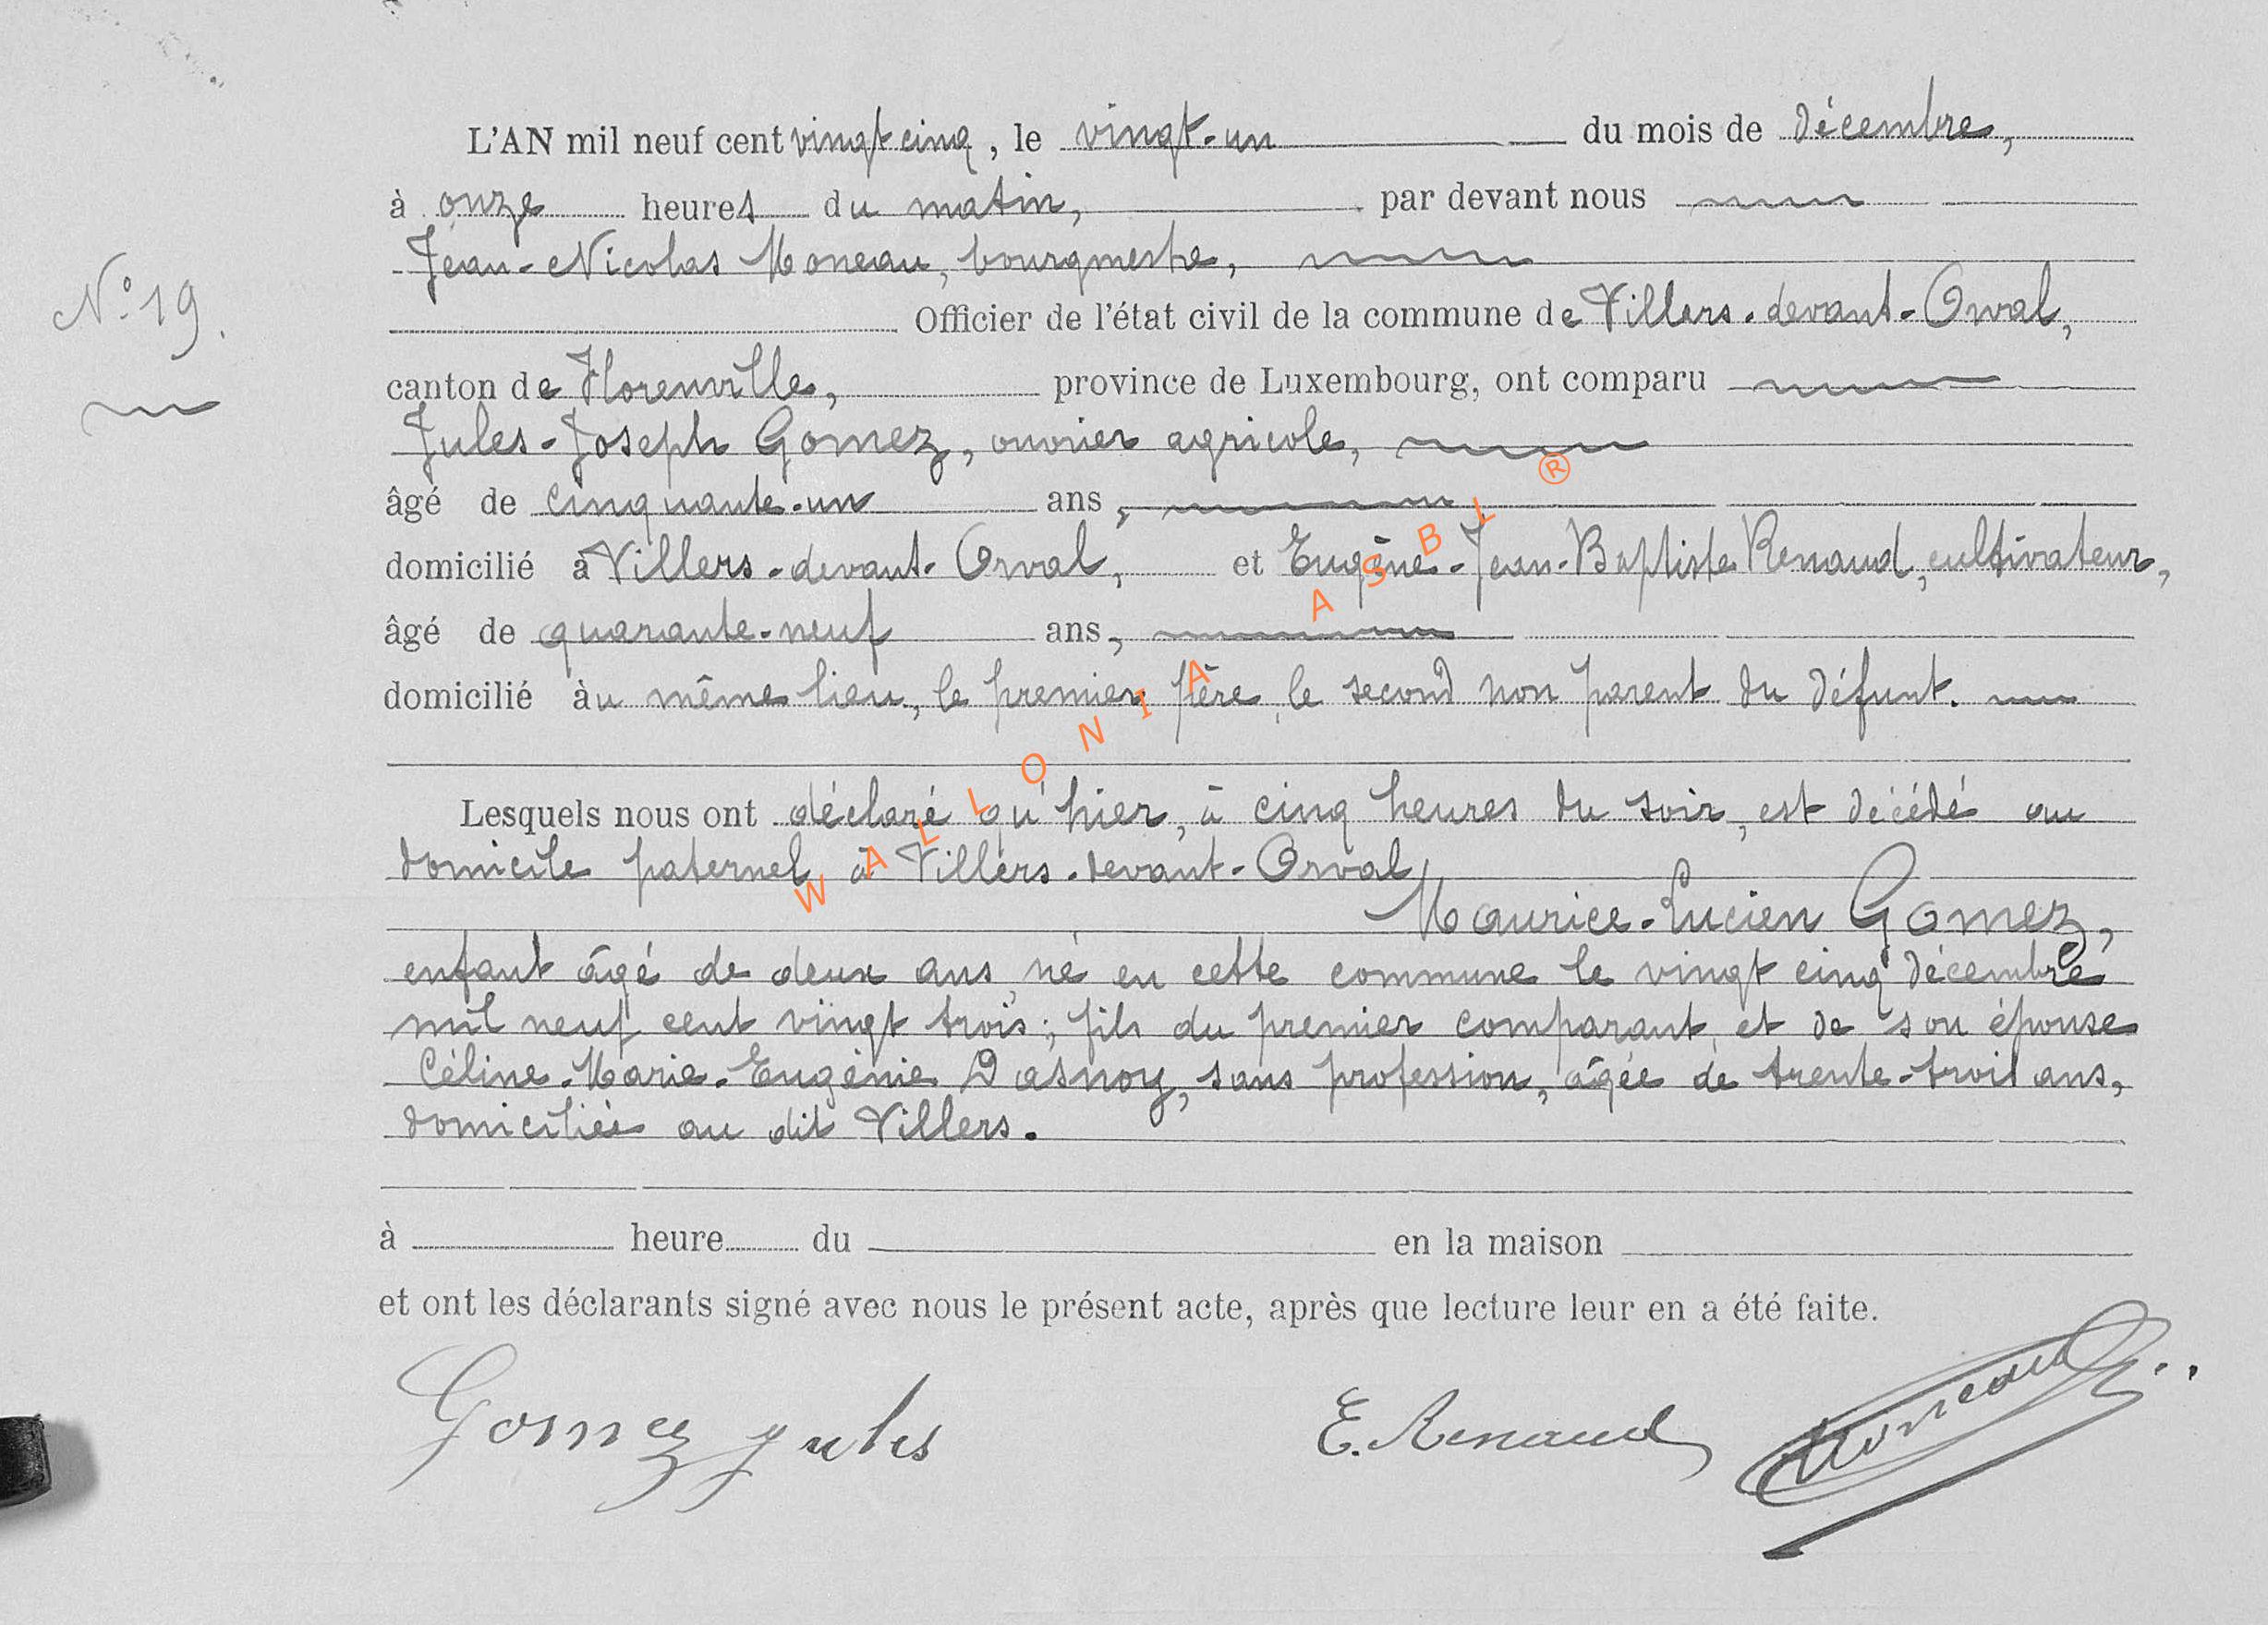 L'AN mil neuf cent vingt cinq, le vingt-un du mois de décembre,
à onze heures du matin, par devant nous
Jean-Nicolas Moneau, bourgmestre,
N° 19.
Officier de l'état civil de la commune de Villers-devant-Orval,
canton de Florenville, province de Luxembourg, ont comparu
Jules-Joseph Gomez, ouvrier agricole,
âgé de cinquante-un ans,
domicilié à Villers-devant-Orval, et Eugène-Jean-Baptiste Renaud, cultivateur,
âgé de quarante-neuf ans,
domicilié àu même lieu, le premier père, le second non parent du défunt.
Lesquels nous ont déclaré qu'hier, à cinq heures du soir, est décédé au
domicile paternel à Villers-devant-Orval
Maurice-Lucien Gomez,
enfant âgé de deux ans, né en cette commune le vingt cinq décembre
mil neuf cent vingt trois; fils du premier comparant, et de son épouse
Céline-Marie-Eugénie Dasnoy, sans profession, âgée de trente-trois ans,
domiciliée au dit Villers.
à heure du en la maison
et ont les déclarants signé avec nous le présent acte, après que lecture leur en a été faite.
Gomez Jules E. Renaud Moneau
WALLONIA ASBL ®